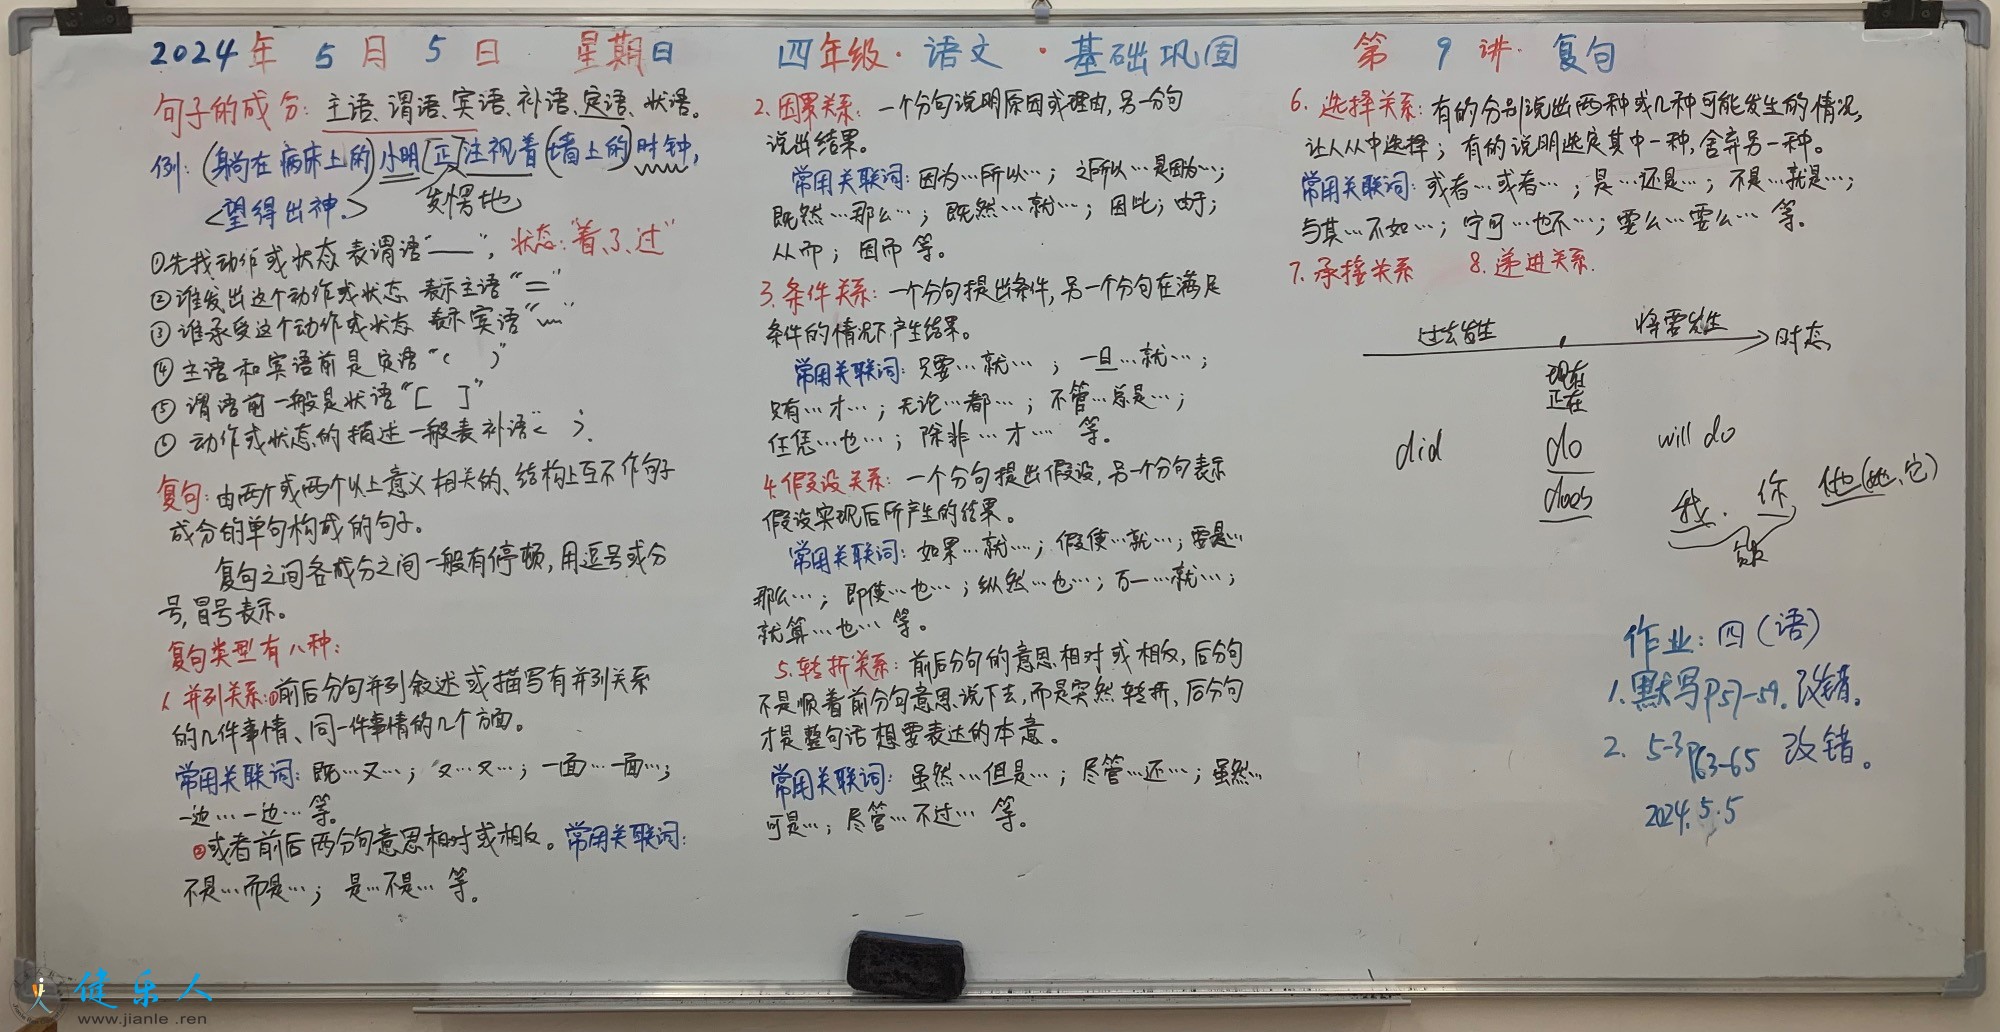 2024年5月5日 星期日 四年级·语文·基础巩固 第9讲·复句
句子的成分：主语、谓语、宾语、补语、定语、状语。
例：(躺在病床上的)小明[正]注视着(墙上的)时钟，
发愣地
<望得出神。>
①先找动作或状态 表谓语“——”，状态：“着、了、过”
②谁发出这个动作或状态 表示主语“＝”
③谁承受这个动作或状态 表示宾语“﹏”
④主语和宾语前是定语“( )”
⑤谓语前一般是状语“[ ]”
⑥动作或状态的描述一般表补语< >.
复句：由两个或两个以上意义相关的、结构上互不作句子
成分的单句构成的句子。
复句之间各成分之间一般有停顿，用逗号或分
号，冒号表示。
复句类型有八种：
1. 并列关系：①前后分句并列叙述或描写有并列关系
的几件事情、同一件事情的几个方面。
常用关联词：既…又…；又…又…；一面…一面…；
一边…一边…等。
②或者前后两分句意思相对或相反。常用关联词：
不是…而是…；是…不是…等。
2. 因果关系：一个分句说明原因或理由，另一分句
说出结果。
常用关联词：因为…所以…；之所以…是因为…；
既然…那么…；既然…就…；因此；由于；
从而；因而 等。
3. 条件关系：一个分句提出条件，另一个分句在满足
条件的情况下产生结果。
常用关联词：只要…就…；一旦…就…；
只有…才…；无论…都…；不管…总是…；
任凭…也…；除非…才… 等。
4. 假设关系：一个分句提出假设，另一个分句表示
假设实现后所产生的结果。
常用关联词：如果…就…；假使…就…；要是…
那么…；即使…也…；纵然…也…；万一…就…；
就算…也…等。
5. 转折关系：前后分句的意思相对或相反，后分句
不是顺着前分句意思说下去，而是突然转折，后分句
才是整句话想要表达的本意。
常用关联词：虽然…但是…；尽管…还…；虽然…
可是…；尽管…不过… 等。
6. 选择关系：有的分别说出两种或几种可能发生的情况，
让人从中选择；有的说明选定其中一种，舍弃另一种。
常用关联词：或者…或者…；是…还是…；不是…就是…；
与其…不如…；宁可…也不…；要么…要么…等。
7. 承接关系 8. 递进关系.
过去发生 将要发生 时态
现在
正在
did do will do
does
我. 你 他(她、它)
作业：四(语)
1. 默写P57-59. 改错。
2. 5-3 P63-65 改错。
2024.5.5
健乐人
www.jianle.ren